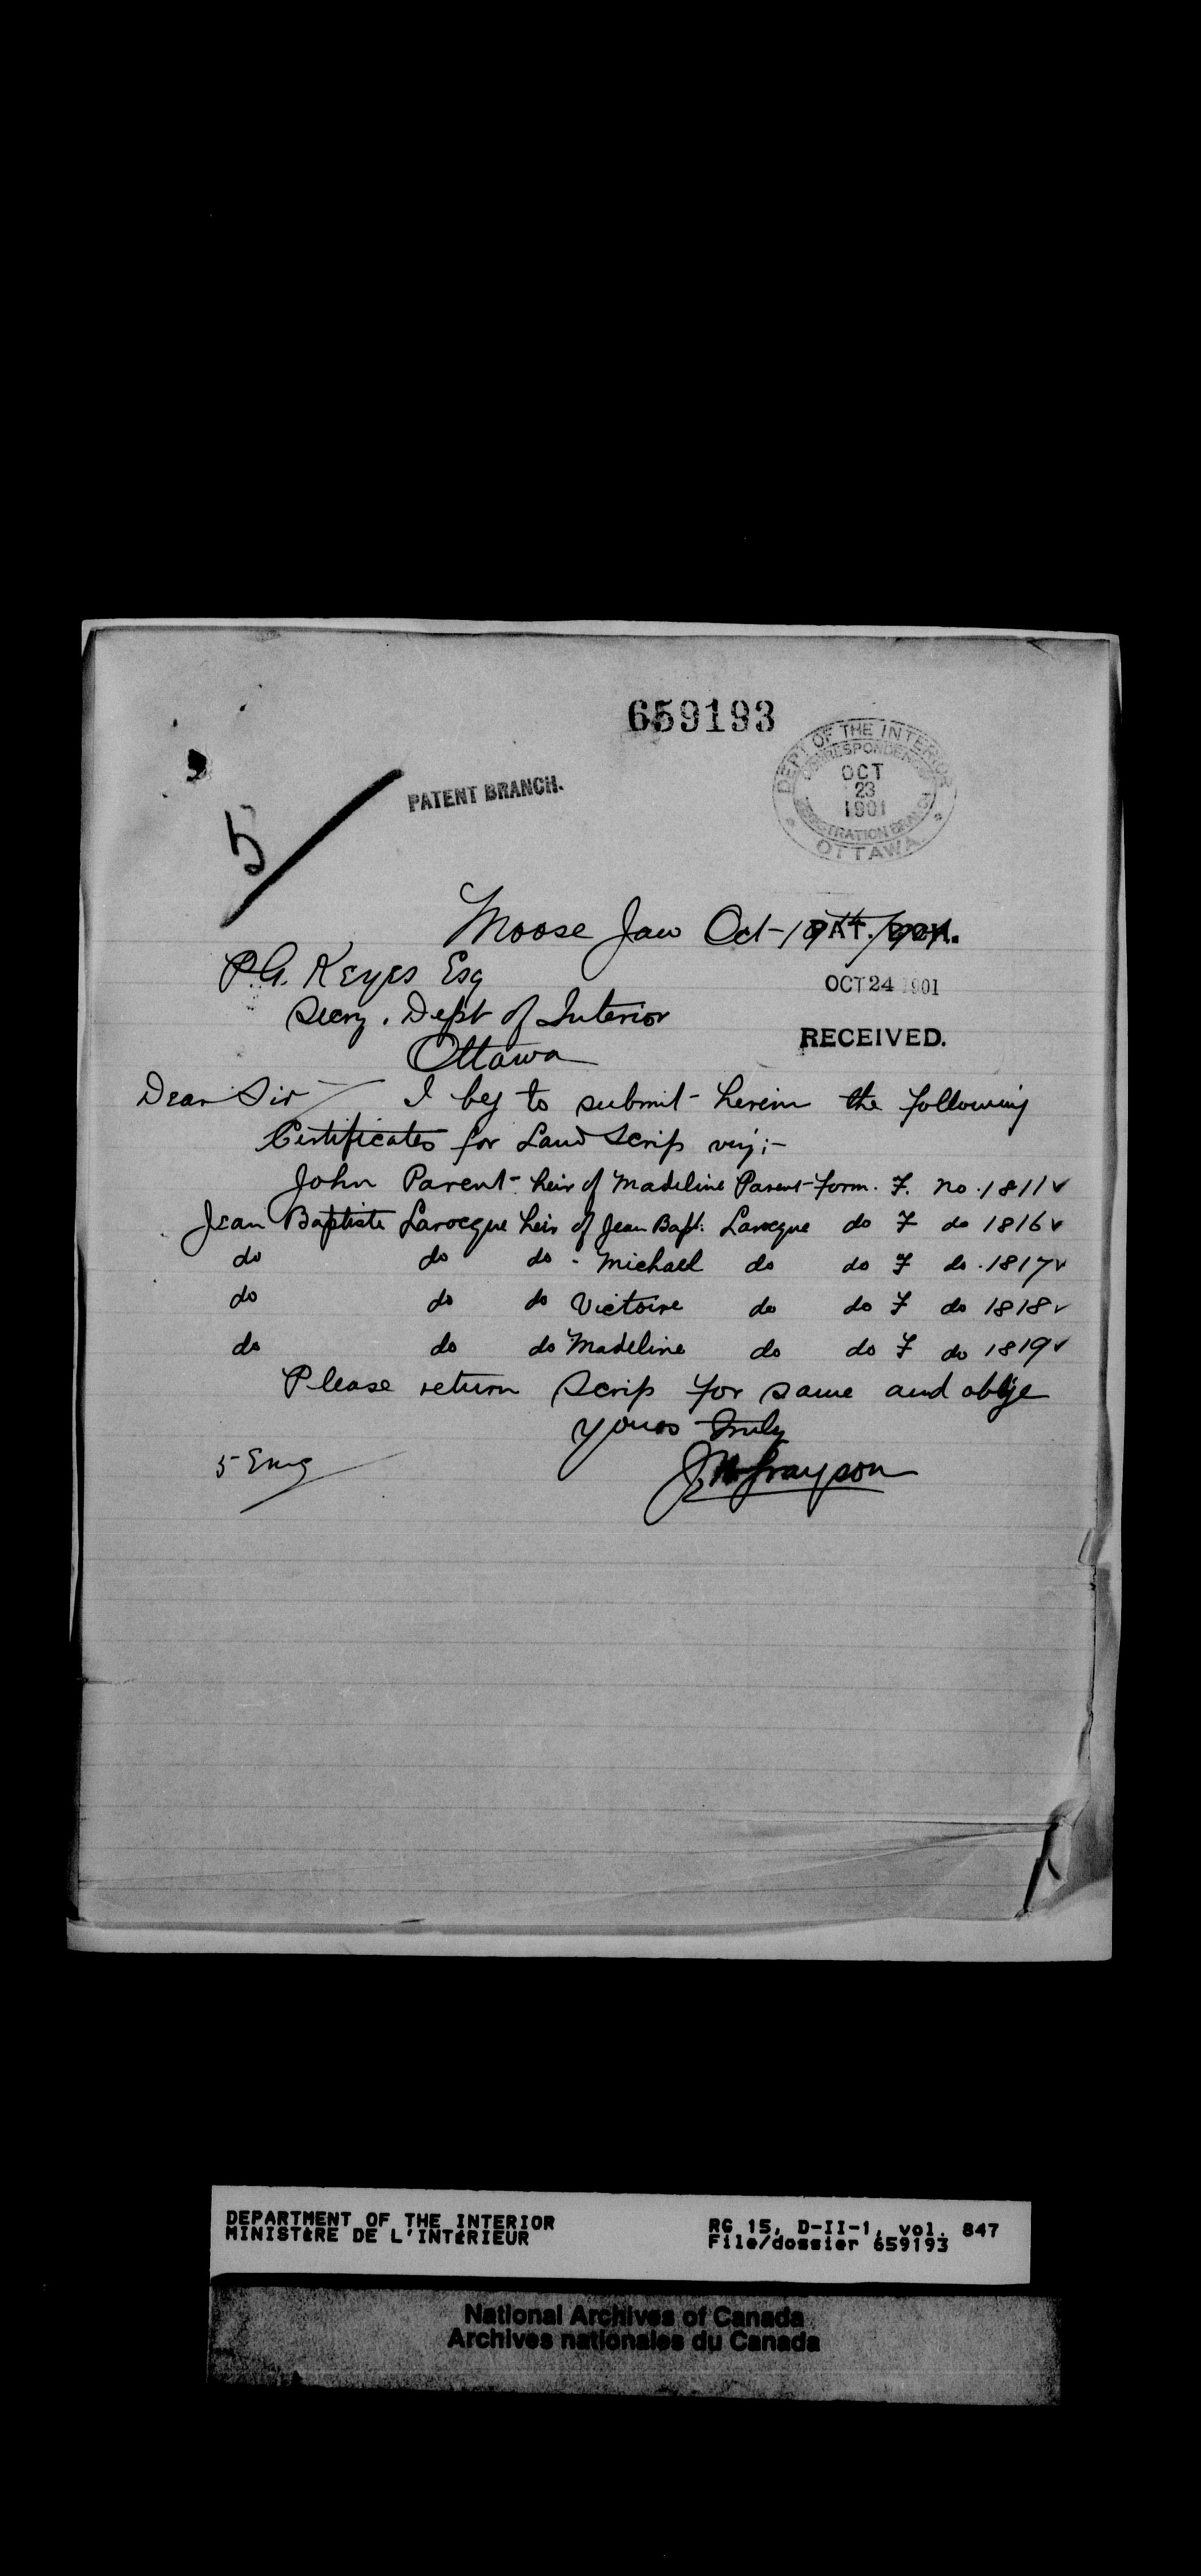 659193
DEPT OF THE INTERIOR
CORRESPONDENCE
OCT
23
1901
REGISTRATION BRANCH
OTTAWA
PATENT BRANCH.
5
Moose Jaw Oct-19th/901
PAT. BCH.
OCT 24 1901
RECEIVED.
P.G. Keyes Esq
Secry. Dept of Interior
Ottawa
Dear Sir I beg to submit herein the following
Certificates for Land Scrip viz;-
John Parent- heir of Madeline Parent- form. F. No. 1811 ✓
Jean Baptiste Larocque heir of Jean Bapt. Larocque do F do 1816 ✓
do do do - Michael do do F do. 1817 ✓
do do do Victoire do do F do 1818 ✓
do do do Madeline do do F do 1819 ✓
Please return Scrip for same and oblige
Yours truly
5 Eng
Grayson
DEPARTMENT OF THE INTERIOR
MINISTÈRE DE L'INTÉRIEUR
RG 15, D-II-1, vol. 847
File/dossier 659193
National Archives of Canada
Archives nationales du Canada